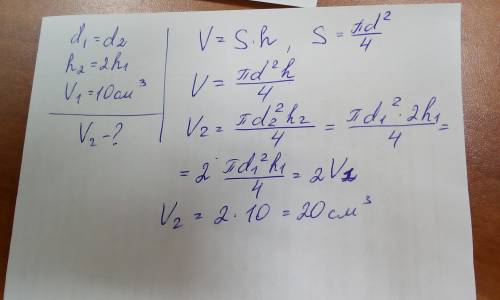 d₁ = d₂
h₂ = 2h₁
V₁ = 10 см³
V₂ - ?
V = S·h, S = πd²/4
V = πd²h/4
V₂ = πd₂²h₂/4 = πd₁²·2h₁/4 =
= 2· πd₁²h₁/4 = 2V₁
V₂ = 2·10 = 20 см³